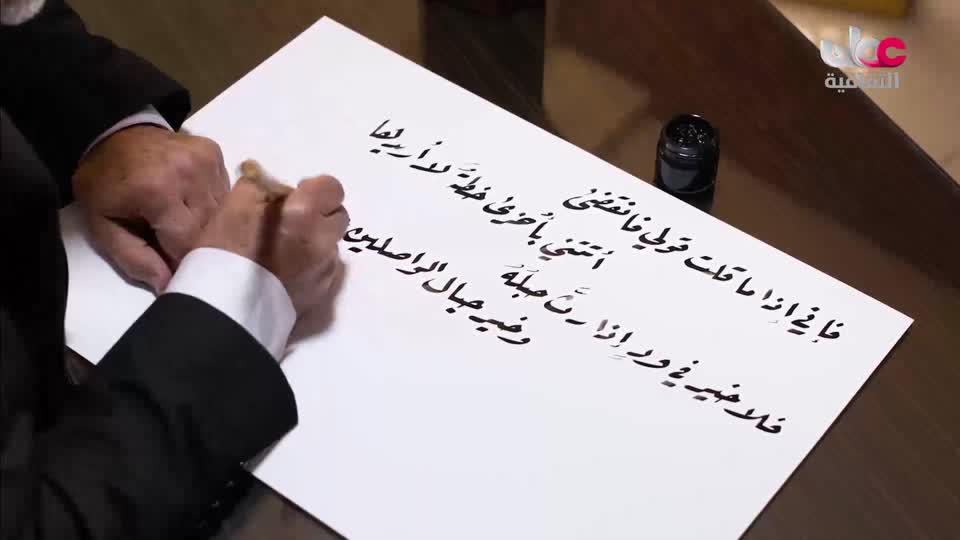 عمان
الثقافية
فإني إذا ما قلت قولي فانقضىٰ
أتتني بأُخرىٰ خطةً لا أُريدها
فلا خير في ودٍ إذا رثَّ حبلُهُ
وخير حبال الواصلين